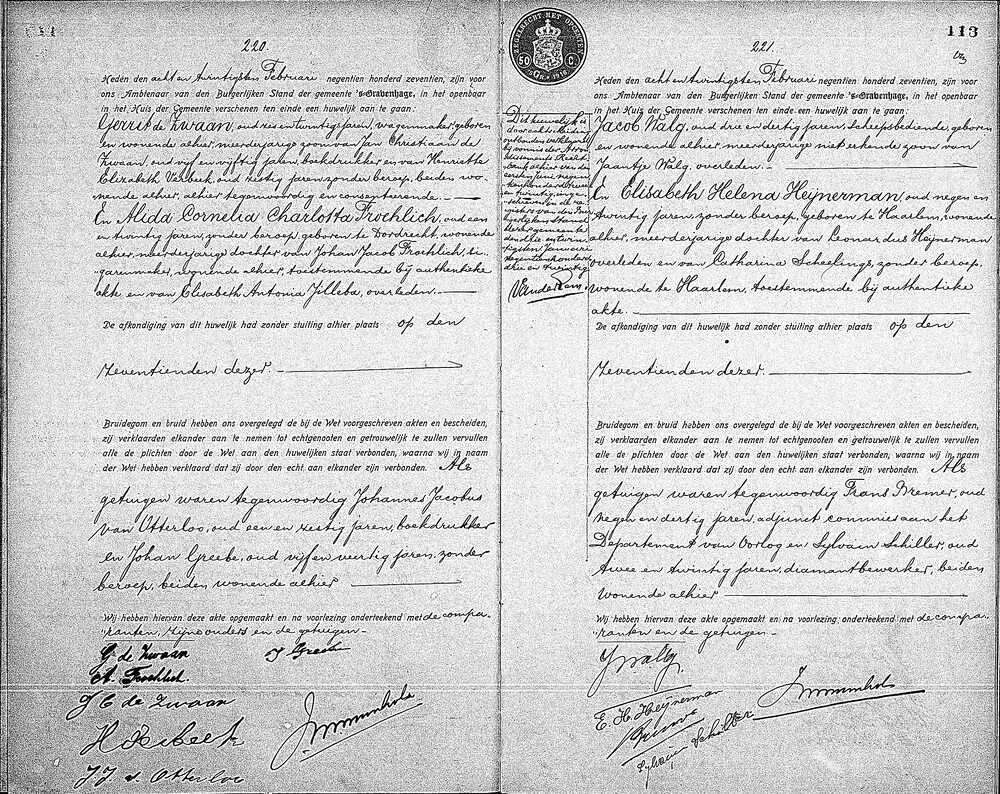 220.
Heden den acht en twintigsten Februari negentien honderd zeventien, zijn voor
ons Ambtenaar van den Burgerlijken Stand der gemeente 's-Gravenhage, in het openbaar
in het Huis der Gemeente verschenen ten einde een huwelijk aan te gaan:
Gerrit de Zwaan, oud zes en twintig jaren, wagenmaker, geboren
en wonende alhier, meerderjarige zoon van Jan Christiaan de
Zwaan, oud vijf en vijftig jaren, boekdrukker en van Henriette
Elizabeth Verbeek, oud zestig jaren, zonder beroep, beiden wo-
nende alhier, alhier tegenwoordig en consenteerende.
En Alida Cornelia Charlotta Froehlich, oud een
en twintig jaren, zonder beroep, geboren te Dordrecht, wonende
alhier, meerderjarige dochter van Johan Jacob Froehlich, si-
garenmaker, wonende alhier, toestemmende bij authentieke
akte en van Elisabeth Antonia Jilleba, overleden.
De afkondiging van dit huwelijk had zonder stuiting alhier plaats op den
zeventienden dezer.
Bruidegom en bruid hebben ons overgelegd de bij de Wet voorgeschreven akten en bescheiden,
zij verklaarden elkander aan te nemen tot echtgenooten en getrouwelijk te zullen vervullen
alle de plichten door de Wet aan den huwelijken staat verbonden, waarna wij in naam
der Wet hebben verklaard dat zij door den echt aan elkander zijn verbonden. Als
getuigen waren tegenwoordig Johannes Jacobus
van Otterloo, oud een en zestig jaren, boekdrukker
en Johan Greebe, oud vijf en veertig jaren, zonder
beroep, beiden wonende alhier
Wij hebben hiervan deze akte opgemaakt en na voorlezing onderteekend met de compa-
"ranten, zijne ouders en de getuigen.
G. de Zwaan J Greebe
A. Froehlich.
J C de Zwaan
H Verbeek
J. J. v. Otterloo
KLEINZEGEL
50 C.
113
221.
Heden den acht en twintigsten Februari negentien honderd zeventien, zijn voor
ons Ambtenaar van den Burgerlijken Stand der gemeente 's-Gravenhage, in het openbaar
in het Huis der Gemeente verschenen ten einde een huwelijk aan te gaan:
Jacob Walg, oud drie en dertig jaren, scheepsbediende, geboren
en wonende alhier, meerderjarige niet erkende zoon van
Jaantje Walg, overleden.
En Elisabeth Helena Heijnerman, oud negen en
twintig jaren, zonder beroep, geboren te Haarlem, wonende
alhier, meerderjarige dochter van Leonardus Heijnerman
overleden en van Catharina Scheelings, zonder beroep,
wonende te Haarlem, toestemmende bij authentieke
akte.
De afkondiging van dit huwelijk had zonder stuiting alhier plaats op den
zeventienden dezer.
Bruidegom en bruid hebben ons overgelegd de bij de Wet voorgeschreven akten en bescheiden,
zij verklaarden elkander aan te nemen tot echtgenooten en getrouwelijk te zullen vervullen
alle de plichten door de Wet aan den huwelijken staat verbonden, waarna wij in naam
der Wet hebben verklaard dat zij door den echt aan elkander zijn verbonden. Als
getuigen waren tegenwoordig Frans Bremer, oud
negen en dertig jaren, adjunct commies aan het
Departement van Oorlog en Sylvain Schiller, oud
twee en twintig jaren, diamantbewerker, beiden
wonende alhier
Wij hebben hiervan deze akte opgemaakt en na voorlezing onderteekend met de compa-
"ranten en de getuigen.
J Walg.
E. H. Heijnerman
Sylvain Schiller
Dit huwelijk is
door echtscheiding
ontbonden
bij vonnis der Arron-
dissements Recht-
bank alhier van den
eersten Juni negen-
tienhonderd twee
en twintig, inge-
schreven in de re-
gisters van den Bur-
gerlijken Stand
dezer gemeente
den drie en twin-
tigsten Januari
negentienhonderd
drie en twintig